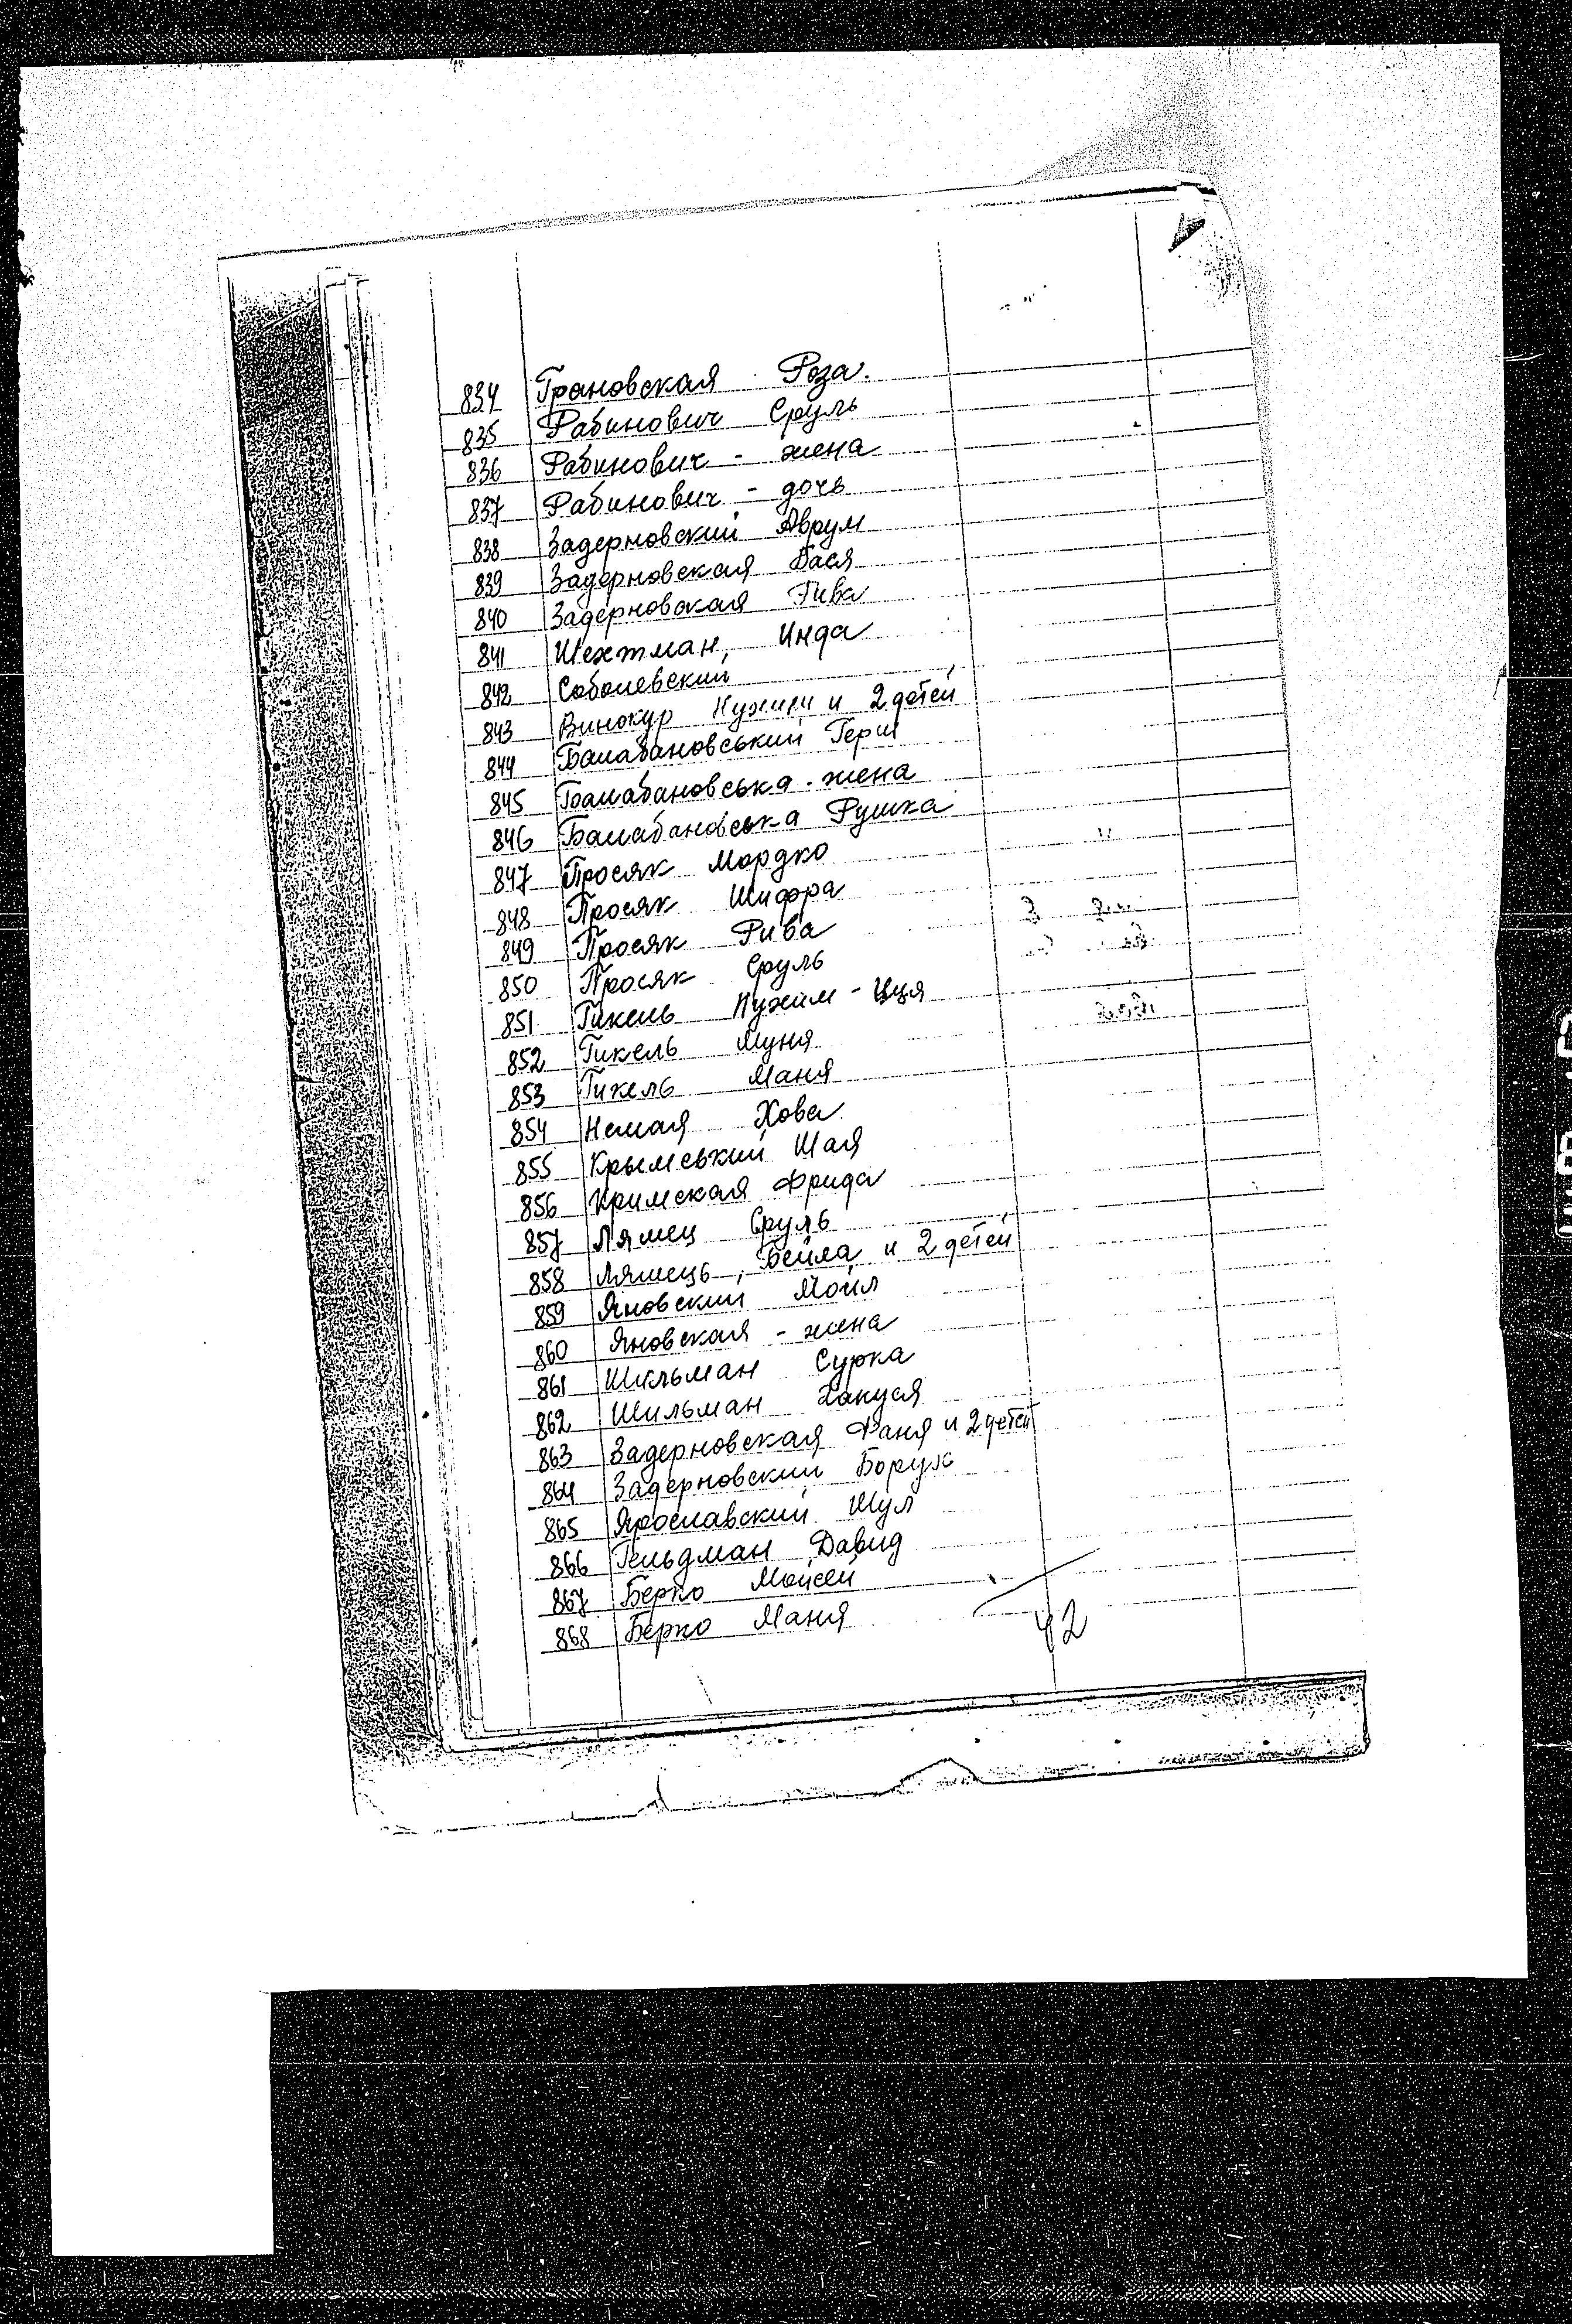 834 Грановская Роза.
835 Рабинович Сруль
836 Рабинович - жена
837 Рабинович - дочь
838 Задерновский Аврум
839 Задерновская Бася
840 Задерновская Рива
841 Шехтман, Инда
842 Соболевский
843 Винокур Нухим и 2 детей
844 Балабановський Герш
845 Балабановська - жена
846 Балабановська Рушка
847 Просяк Мордко
848 Просяк Шифра
849 Просяк Рива
850 Просяк Сруль
851 Гикель Нухим - Цуя
852 Гикель Муня
853 Гикель Маня
854 Немая Хова
855 Крымський Шая
856 Кримская Фрида
857 Лямец Сруль
858 Лямець, Бейла и 2 детей
859 Яновский Мойл
860 Яновская - жена
861 Шильман Сурка
862 Шильман Хакуся
863 Задерновская Фаня и 2 детей
864 Задерновский Борух
865 Ярославский Шул
866 Гельдман Давид
867 Берко Мойсей
868 Берко Маня
42